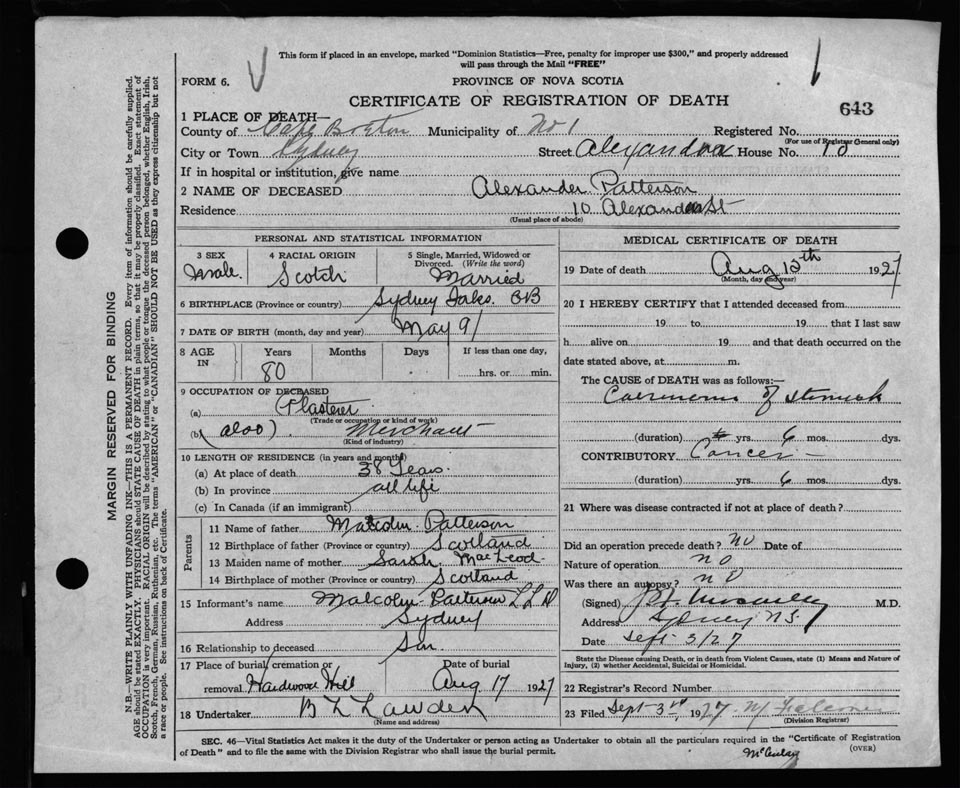 This form if placed in an envelope, marked "Dominion Statistics—Free, penalty for improper use $300," and properly addressed
will pass through the Mail "FREE"
FORM 6.
PROVINCE OF NOVA SCOTIA
CERTIFICATE OF REGISTRATION OF DEATH
643
1 PLACE OF DEATH—
County of Cape Breton Municipality of No 1 Registered No.
(For use of Registrar General only)
City or Town Sydney Street Alexandra House No. 10
If in hospital or institution, give name
2 NAME OF DECEASED Alexander Patterson
Residence 10 Alexandra St
(Usual place of abode)
PERSONAL AND STATISTICAL INFORMATION
3 SEX Male. 4 RACIAL ORIGIN Scotch 5 Single, Married, Widowed or Divorced. (Write the word) Married
6 BIRTHPLACE (Province or country) Sydney Forks. CB
7 DATE OF BIRTH (month, day and year) May 9/
8 AGE IN Years 80 Months Days If less than one day, hrs. or min.
9 OCCUPATION OF DECEASED
(a) Plasterer
(Trade or occupation or kind of work)
(b) (also) Merchant
(Kind of industry)
10 LENGTH OF RESIDENCE (in years and months)
(a) At place of death 38 Years.
(b) In province all life
(c) In Canada (if an immigrant)
Parents
11 Name of father Malcolm Patterson
12 Birthplace of father (Province or country) Scotland
13 Maiden name of mother Sarah MacLeod
14 Birthplace of mother (Province or country) Scotland
15 Informant's name Malcolm Patterson LLD
Address Sydney
16 Relationship to deceased Son
17 Place of burial, cremation or removal Hardwood Hill Date of burial Aug 17 1927
18 Undertaker
(Name and address)
MEDICAL CERTIFICATE OF DEATH
19 Date of death Aug 15th 1927
(Month, day and year)
20 I HEREBY CERTIFY that I attended deceased from
19 to 19 that I last saw
h alive on 19 and that death occurred on the
date stated above, at m.
The CAUSE OF DEATH was as follows:—
Carcinoma of stomach
(duration) yrs. 6 mos. dys.
CONTRIBUTORY Cancer —
(duration) yrs. 6 mos. dys.
21 Where was disease contracted if not at place of death?
Did an operation precede death? No Date of
Nature of operation NO
Was there an autopsy? NO
(Signed) M.D.
Address Sydney N.S.
Date Sept 3/27
State the Disease causing Death, or in death from Violent Causes, state (1) Means and Nature of
Injury, (2) whether Accidental, Suicidal or Homicidal.
22 Registrar's Record Number
23 Filed Sept 3rd, 1927
(Division Registrar)
SEC. 46—Vital Statistics Act makes it the duty of the Undertaker or person acting as Undertaker to obtain all the particulars required in the "Certificate of Registration
of Death" and to file the same with the Division Registrar who shall issue the burial permit.
(OVER)
MARGIN RESERVED FOR BINDING
N.B.—WRITE PLAINLY WITH UNFADING INK—THIS IS A PERMANENT RECORD. Every item of information should be carefully supplied.
AGE should be stated EXACTLY. PHYSICIANS should STATE CAUSE OF DEATH in plain terms, so that it may be properly classified. Exact statement of
OCCUPATION is very important. RACIAL ORIGIN will be described by stating to what people or tongue the deceased person belonged, whether English, Irish,
Scotch, French, German, Russian, Ruthenian, etc. The terms "AMERICAN" or "CANADIAN" SHOULD NOT BE USED as they express citizenship but not
a race or people. See instructions on back of Certificate.